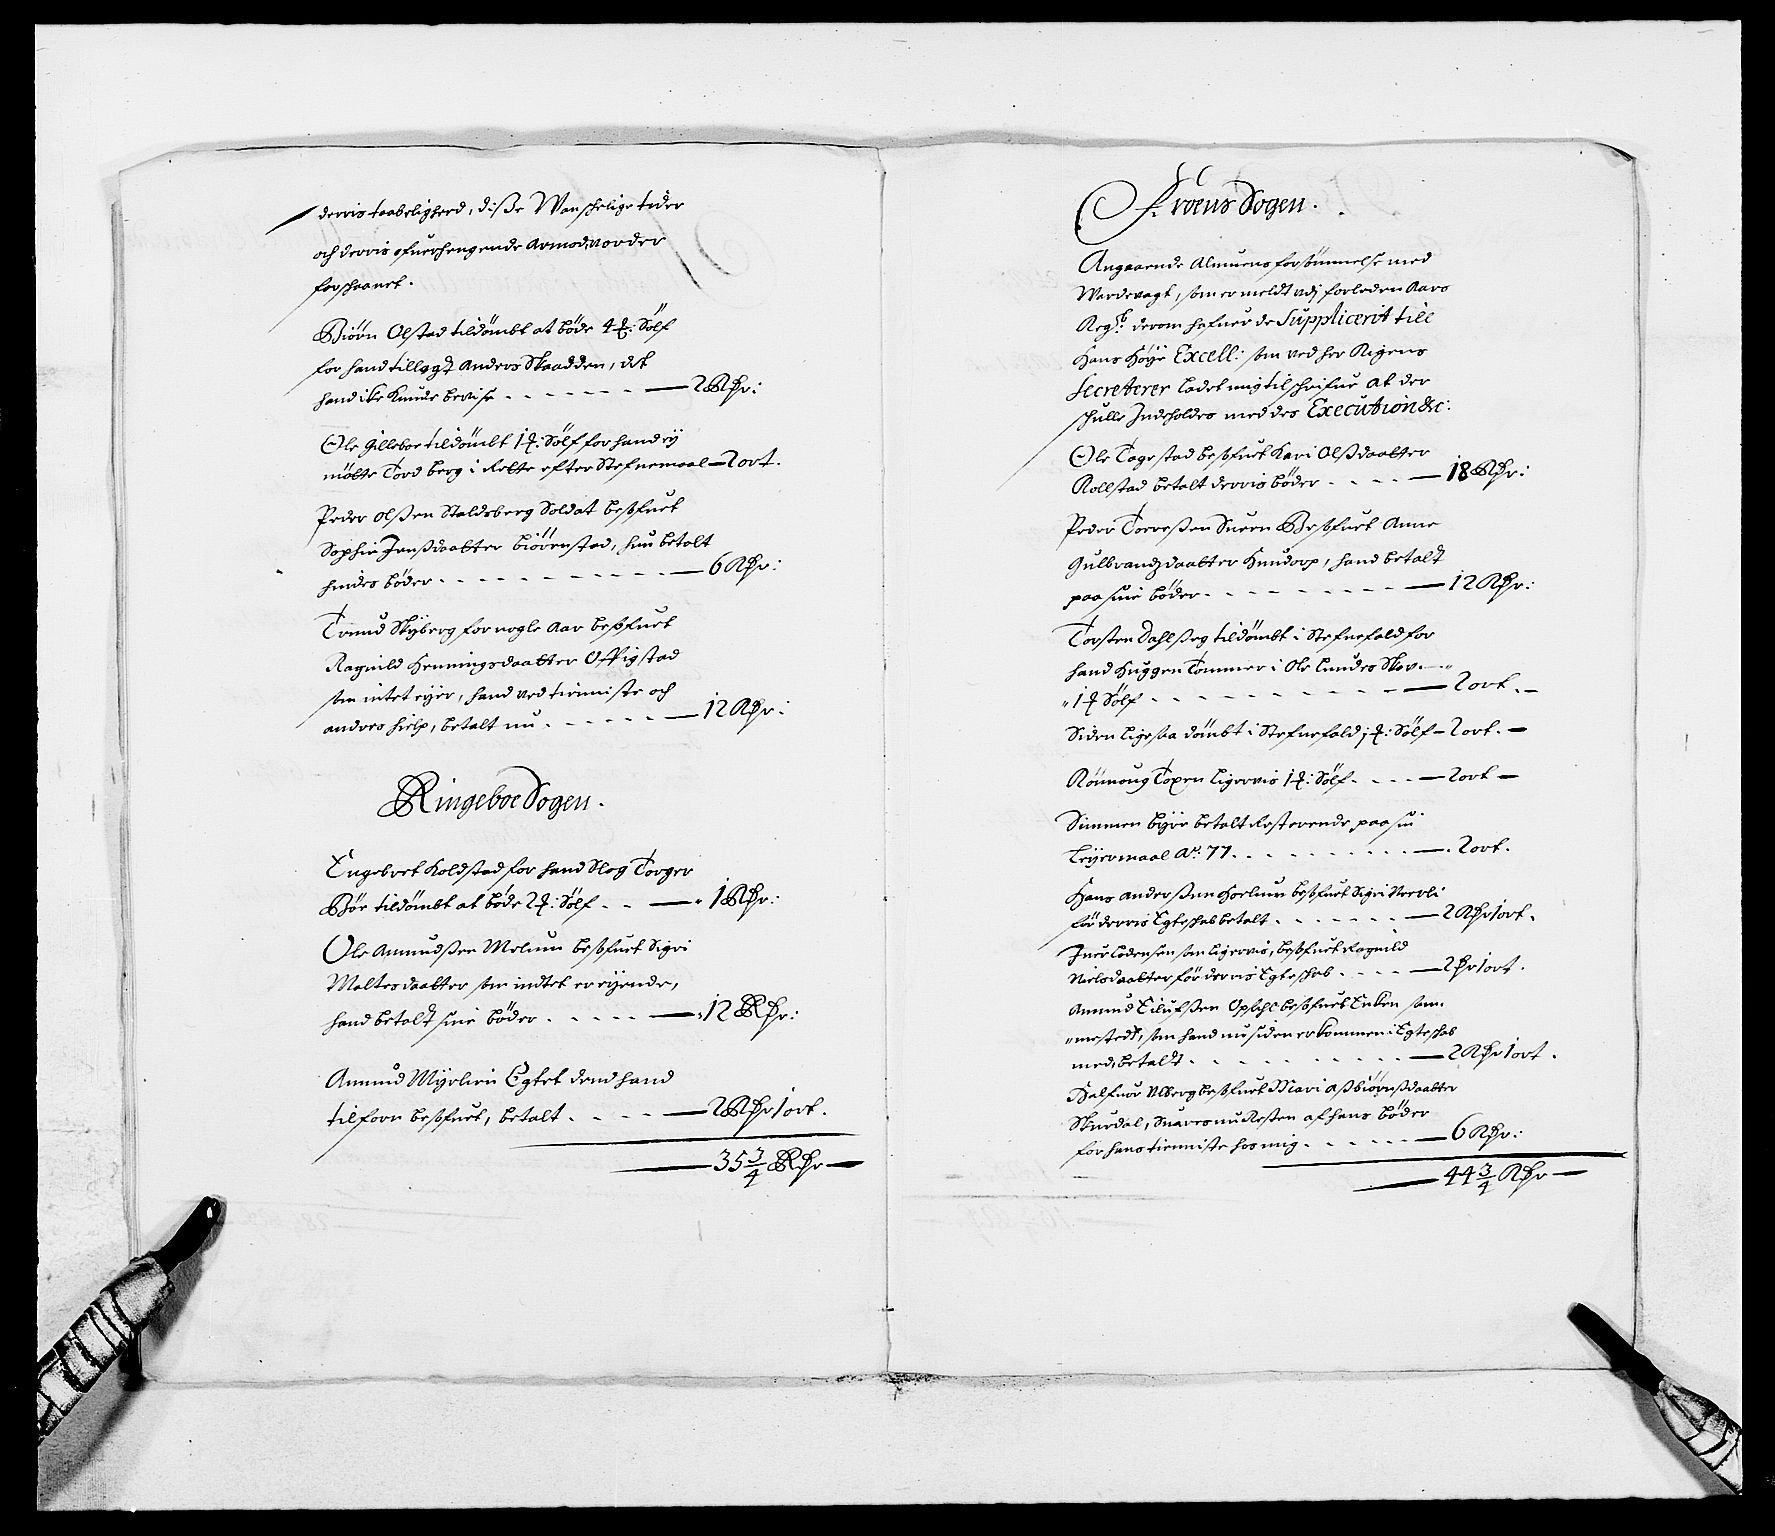 derris taabelighed, disse Wanschelige tider
och derris ofuerhengende Armod, vorder
forschaanet.
Biörn Olstad tildömbt at böde 4 ℔: Sölf
for hand tillagt Anders Skaadden, det
hand icke kunde bevise - - - - 2 Rdr:
Ole Gilleboe tildömbt 1 ℔: Sölf for hand ey
mötte Tord berg i Rette efter Stefnemaal - 2 ort.
Peder Olssen Staldsberg Soldat besofuet
Sophie Jensdaatter Biörnstad, hun betalt
hindes böder - - - - 6 Rdr:
Trund Skyberg for nogle Aar besofuet
Ragnild Henningsdaatter Offigstad
som intet eyer, hand ved tienniste och
andres hielp, betalt nu - - - - 12 Rdr:
Ringeboe Sogen.
Engebret Kolstad for hand Slog Torger
Böe tildömbt at böde 2 ℔: Sölf - - 1 Rdr:
Ole Amundssen Melum besofuet Sigri
Maltesdaatter som indtet er eyende,
hand betalt sine böder - - - - 12 Rdr:
Amund Myrlien Egtet dend hand
tilforn besofuet, betalt - - - - 2 Rdr 1 ort.
35 3/4 Rdr
Froens Sogen.
Angaaende Almuens forsömmelse med
Wardevagt, som er meldt udj forleden Aars
Regsk: derom hafuer de Supplicerit till
Hans Höye Excell: som ved her Rigens
Secreterer ladet mig tilschrifue at der
schulle Indeholdes med des Execution &c:
Ole Tagestad besofuet Kari Olsdaatter
Kollstad betalt derris böder - - - - 18 Rdr:
Peder Torressen Sueen Besofuet Anne
Gulbrandzdaatter Hundorp, hand betalt
paa sine böder - - - - 12 Rdr:
Torsten Dahlseg tildömbt i Stefnefald for
hand Huggen Tömmer i Ole Lundes Skov
1 ℔ Sölf - - - - 2 ort.
Siden ligesaa dömbt i Stefnefald 1 ℔: Sölf - 2 ort.
Rönnoug Toxen ligervis 1 ℔: Sölf - - - - 2 ort
Simmen byre betalt Resterende paa sin
Leyermaal Ao: 77 - - - - 2 ort.
Hans Anderssen Horlum besofuet Sigri
för derris Egteschab betalt - - - - 2 Rdr 1 ort.
Juer Ladensen som ligervis, besofuet Ragnild
Nielsdaatter för derris Egteschab - - - - 2 Rdr 1 ort.
Amund Eilufssen Opsahl besofuet Enken
mestedt, som hand nu siden er kommen i Egteschab
med, betaldt - - - - 2 Rdr 1 ort.
Halfuor Ulberg besofuet Mari Assbiörnssdaatter
Skurdal, Suares nu Resten af hans böder
for hans tienniste hos mig - - - - 6 Rdr:
44 3/4 Rdr